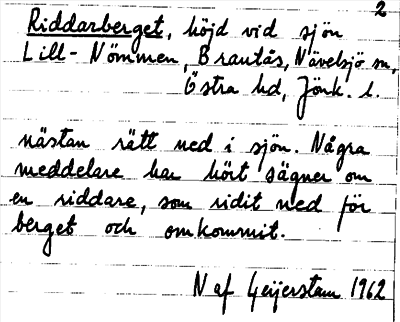 2
Riddarberget, höjd vid sjön
Lill-Nömmen, Brantås, Nävelsjö sn,
Östra hd, Jönk. l.
nästan rätt ned i sjön. Några
meddelare har hört sägner om
en riddare, som ridit ned för
berget och omkommit.
N af Geijerstam 1962